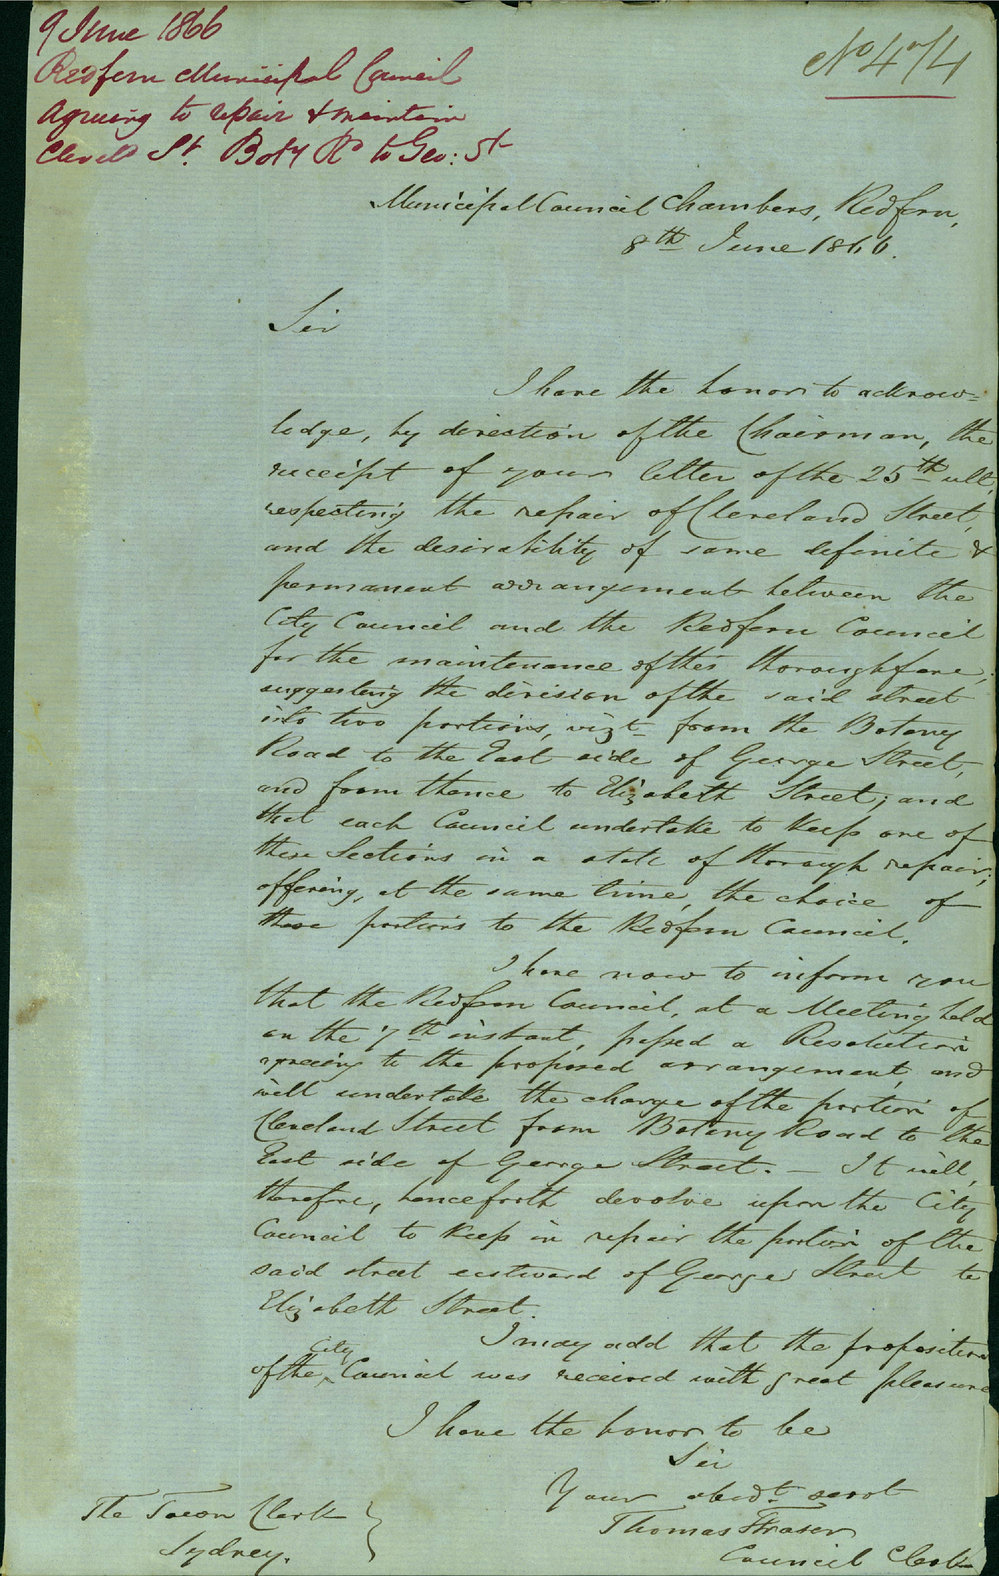 9 June 1866
Redfern Municipal Council
agreeing to repair & maintain
Clevd St. Boty Rd to Geo: St
No 474
Municipal Council Chambers, Redfern,
8th June 1866.
Sir
I have the honor to acknow=
ledge, by direction of the Chairman, the
receipt of your letter of the 25th ult,
respecting the repair of Cleveland Street,
and the desirability of some definite &
permanent arrangement between the
City Council and the Redfern Council
for the maintenance of this thoroughfare,
suggesting the division of the said street
into two portions, vizt from the Botany
Road to the East side of George Street,
and from thence to Elizabeth Street; and
that each Council undertake to keep one of
these Sections in a state of thorough repair;
offering, at the same time, the choice of
these portions to the Redfern Council.
I have now to inform you
that the Redfern Council, at a Meeting held
on the 7th instant, passed a Resolution
agreeing to the proposed arrangement, and
will undertake the charge of the portion of
Cleveland Street from Botany Road to the
East side of George Street. — It will,
therefore, henceforth devolve upon the City
Council to keep in repair the portion of the
said street eastward of George Street to
Elizabeth Street.
I may add that the proposition
of the City Council was received with great pleasure
I have the honor to be
Sir
Your obedt. servt
Thomas Fraser
Council Clerk
The Town Clerk
Sydney.